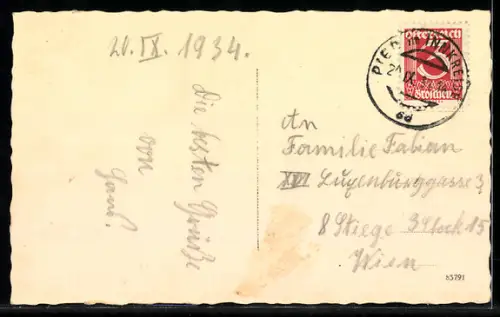 20. IX. 1934.
Die besten Grüße
von
Österreich
8
Groschen
PIED IM INNKREIS
An
Familie Fabian
XVI Luxenburggasse 3
8 Stiege 3 Stock 15
Wien
83791